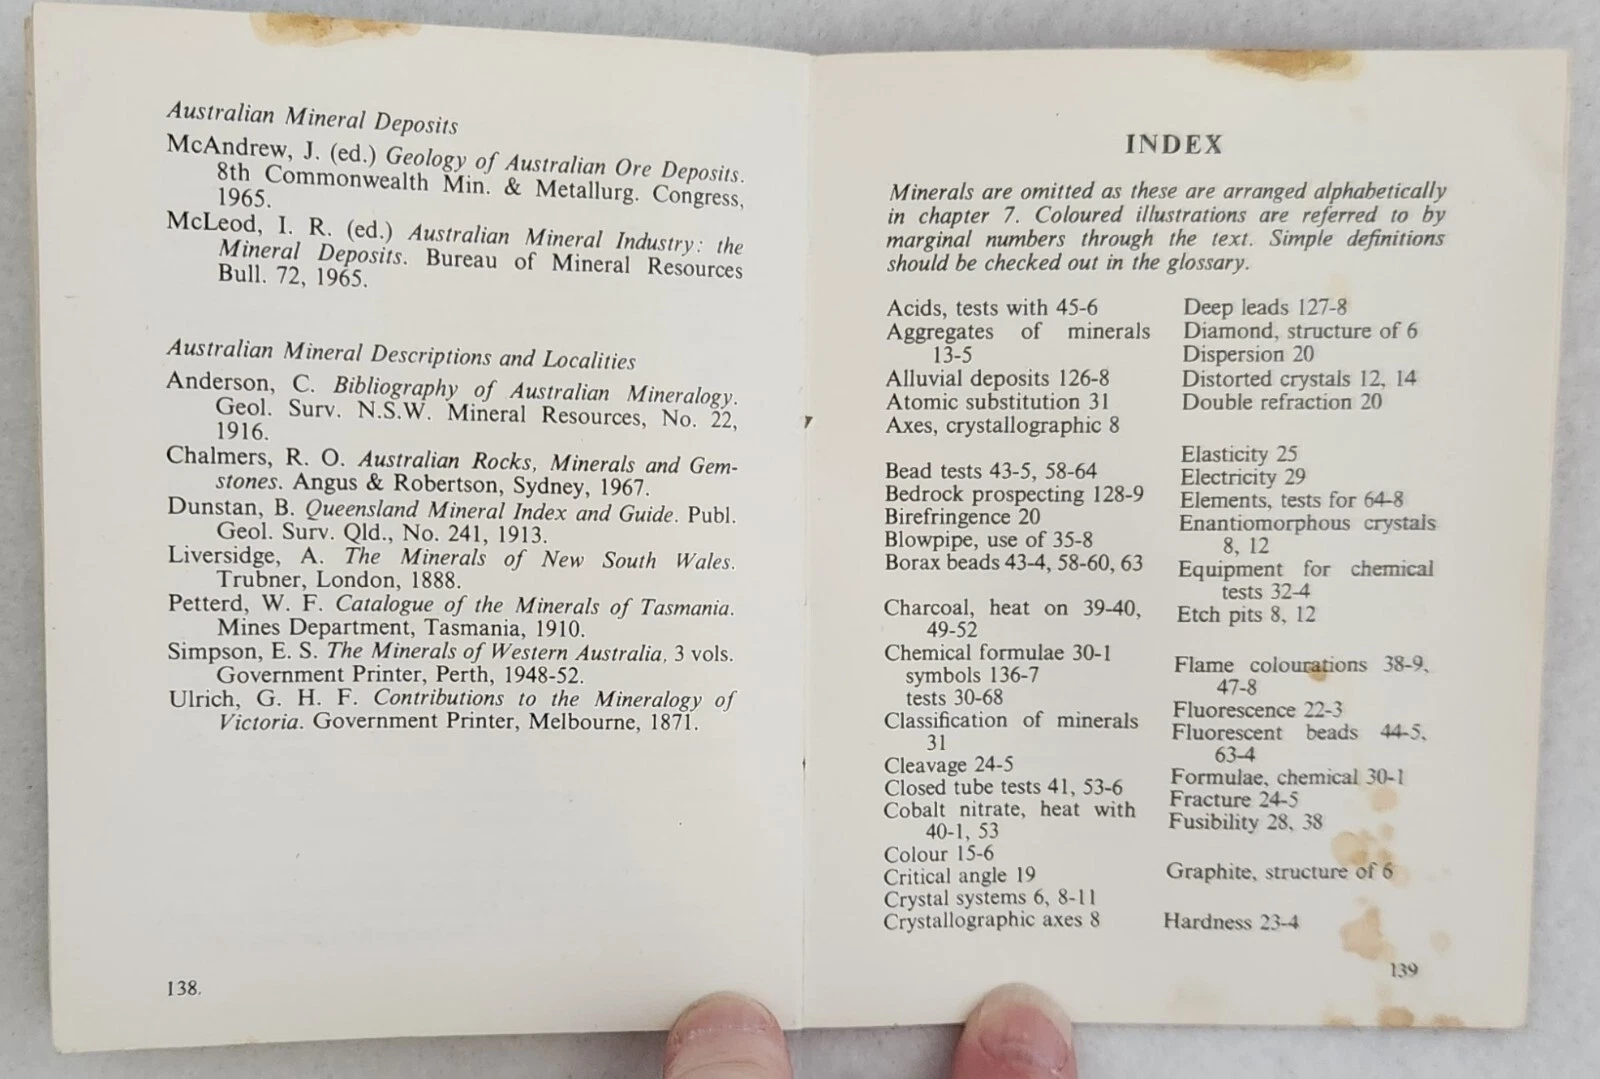 Australian Mineral Deposits
McAndrew, J. (ed.) Geology of Australian Ore Deposits.
8th Commonwealth Min. & Metallurg. Congress,
1965.
McLeod, I. R. (ed.) Australian Mineral Industry: the
Mineral Deposits. Bureau of Mineral Resources
Bull. 72, 1965.
Australian Mineral Descriptions and Localities
Anderson, C. Bibliography of Australian Mineralogy.
Geol. Surv. N.S.W. Mineral Resources, No. 22,
1916.
Chalmers, R. O. Australian Rocks, Minerals and Gem-
stones. Angus & Robertson, Sydney, 1967.
Dunstan, B. Queensland Mineral Index and Guide. Publ.
Geol. Surv. Qld., No. 241, 1913.
Liversidge, A. The Minerals of New South Wales.
Trubner, London, 1888.
Petterd, W. F. Catalogue of the Minerals of Tasmania.
Mines Department, Tasmania, 1910.
Simpson, E. S. The Minerals of Western Australia, 3 vols.
Government Printer, Perth, 1948-52.
Ulrich, G. H. F. Contributions to the Mineralogy of
Victoria. Government Printer, Melbourne, 1871.
138.
INDEX
Minerals are omitted as these are arranged alphabetically
in chapter 7. Coloured illustrations are referred to by
marginal numbers through the text. Simple definitions
should be checked out in the glossary.
Acids, tests with 45-6
Aggregates of minerals
13-5
Alluvial deposits 126-8
Atomic substitution 31
Axes, crystallographic 8
Bead tests 43-5, 58-64
Bedrock prospecting 128-9
Birefringence 20
Blowpipe, use of 35-8
Borax beads 43-4, 58-60, 63
Charcoal, heat on 39-40,
49-52
Chemical formulae 30-1
symbols 136-7
tests 30-68
Classification of minerals
31
Cleavage 24-5
Closed tube tests 41, 53-6
Cobalt nitrate, heat with
40-1, 53
Colour 15-6
Critical angle 19
Crystal systems 6, 8-11
Crystallographic axes 8
Deep leads 127-8
Diamond, structure of 6
Dispersion 20
Distorted crystals 12, 14
Double refraction 20
Elasticity 25
Electricity 29
Elements, tests for 64-8
Enantiomorphous crystals
8, 12
Equipment for chemical
tests 32-4
Etch pits 8, 12
Flame colourations 38-9,
47-8
Fluorescence 22-3
Fluorescent beads 44-5,
63-4
Formulae, chemical 30-1
Fracture 24-5
Fusibility 28, 38
Graphite, structure of 6
Hardness 23-4
139